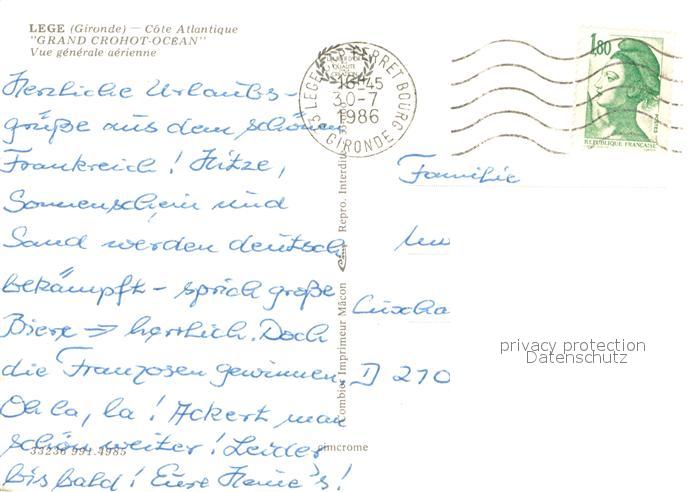 LEGE (Gironde) — Côte Atlantique
"GRAND CROHOT-OCEAN"
Vue générale aérienne
Herzliche Urlaubs-
grüße aus dem schönen
Frankreich! Hitze,
Sonnenschein und
Sand werden deutsch
bekämpft - sprich große
Biere => herrlich. Doch
die Franzosen gewinnen.
Oh la, la! Ackert man
schön weiter! Leider
bis bald! Eure Heine's!
33236 991.4985
cimcrome
Combier Imprimeur Mâcon Cim Repro. Interdite
33 LEGE CAP FERRET BOURG
16H45
30-7
1986
GIRONDE
1,80
POSTES
REPUBLIQUE FRANÇAISE
Familie
Cuxha
D 270
privacy protection
Datenschutz